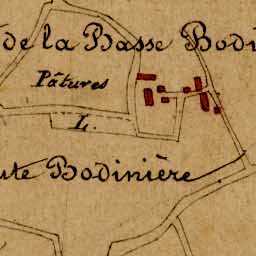 de la Basse Bodi
Pâtures
L.
ute Bodinière